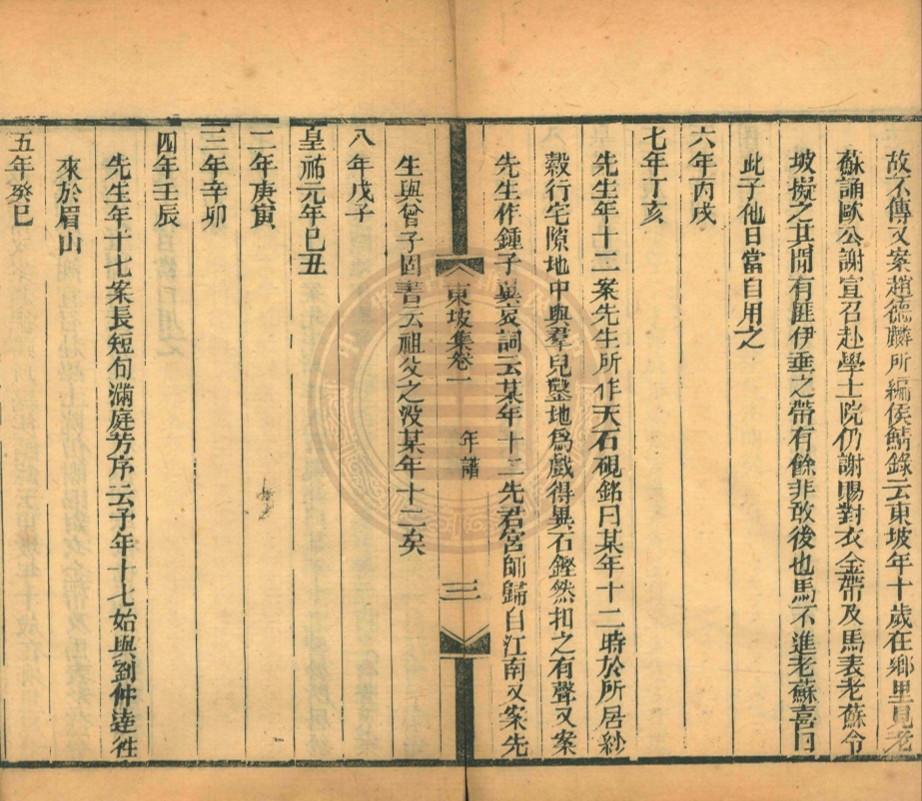 故不傳又案趙德麟所編侯鯖錄云東坡年十歲在鄉里見老
蘇誦歐公謝宣召赴學士院仍謝賜對衣金帶及馬表老蘇令
坡擬之其間有匪伊垂之帶有餘非敢後也馬不進老蘇喜曰
此子他日當自用之
六年丙戌
七年丁亥
先生年十二案先生所作天石硯銘曰某年十二時於所居紗
縠行宅隙地中與羣兒鑿地爲戲得異石鏗然扣之有聲又案
先生作鍾子翼哀詞云某年十二先君宮師歸自江南又案先
東坡集卷一 年譜 三
生與曾子固書云祖父之没某年十二矣
八年戊子
皇祐元年巳丑
二年庚寅
三年辛卯
四年壬辰
先生年十七案長短句滿庭芳序云予年十七始與劉仲達往
來於眉山
五年癸巳